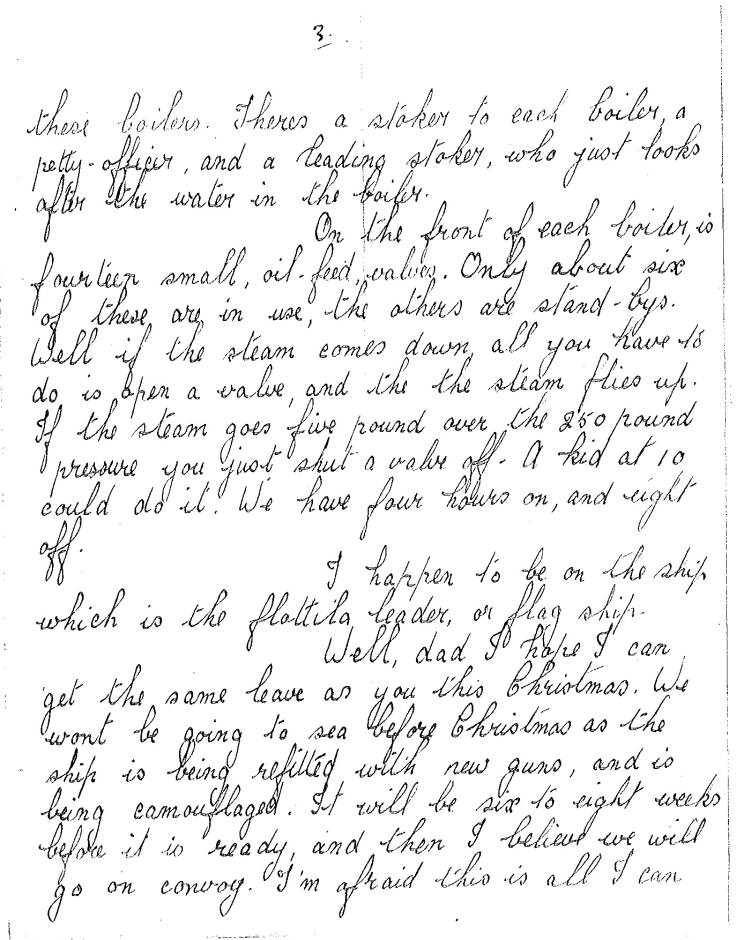 3.
these boilers. Theres a stoker to each boiler, a
petty-officer, and a leading stoker, who just looks
after the water in the boiler.
On the front of each boiler, is
fourteen small, oil-feed, valves. Only about six
of these, are in use, the others are stand-bys.
Well if the steam comes down, all you have to
do is open a valve, and the the steam flies up.
If the steam goes five pound over the 250 pound
pressure you just shut a valve off. A kid at 10
could do it. We have four hours on, and eight
off.
I happen to be on the ship
which is the flottila leader, or flag ship.
Well, dad I hope I can
get the same leave as you this Christmas. We
wont be going to sea before Christmas as the
ship is being refitted with new guns, and is
being camouflaged. It will be six to eight weeks
before it is ready, and then I believe we will
go on convoy. I'm afraid this is all I can